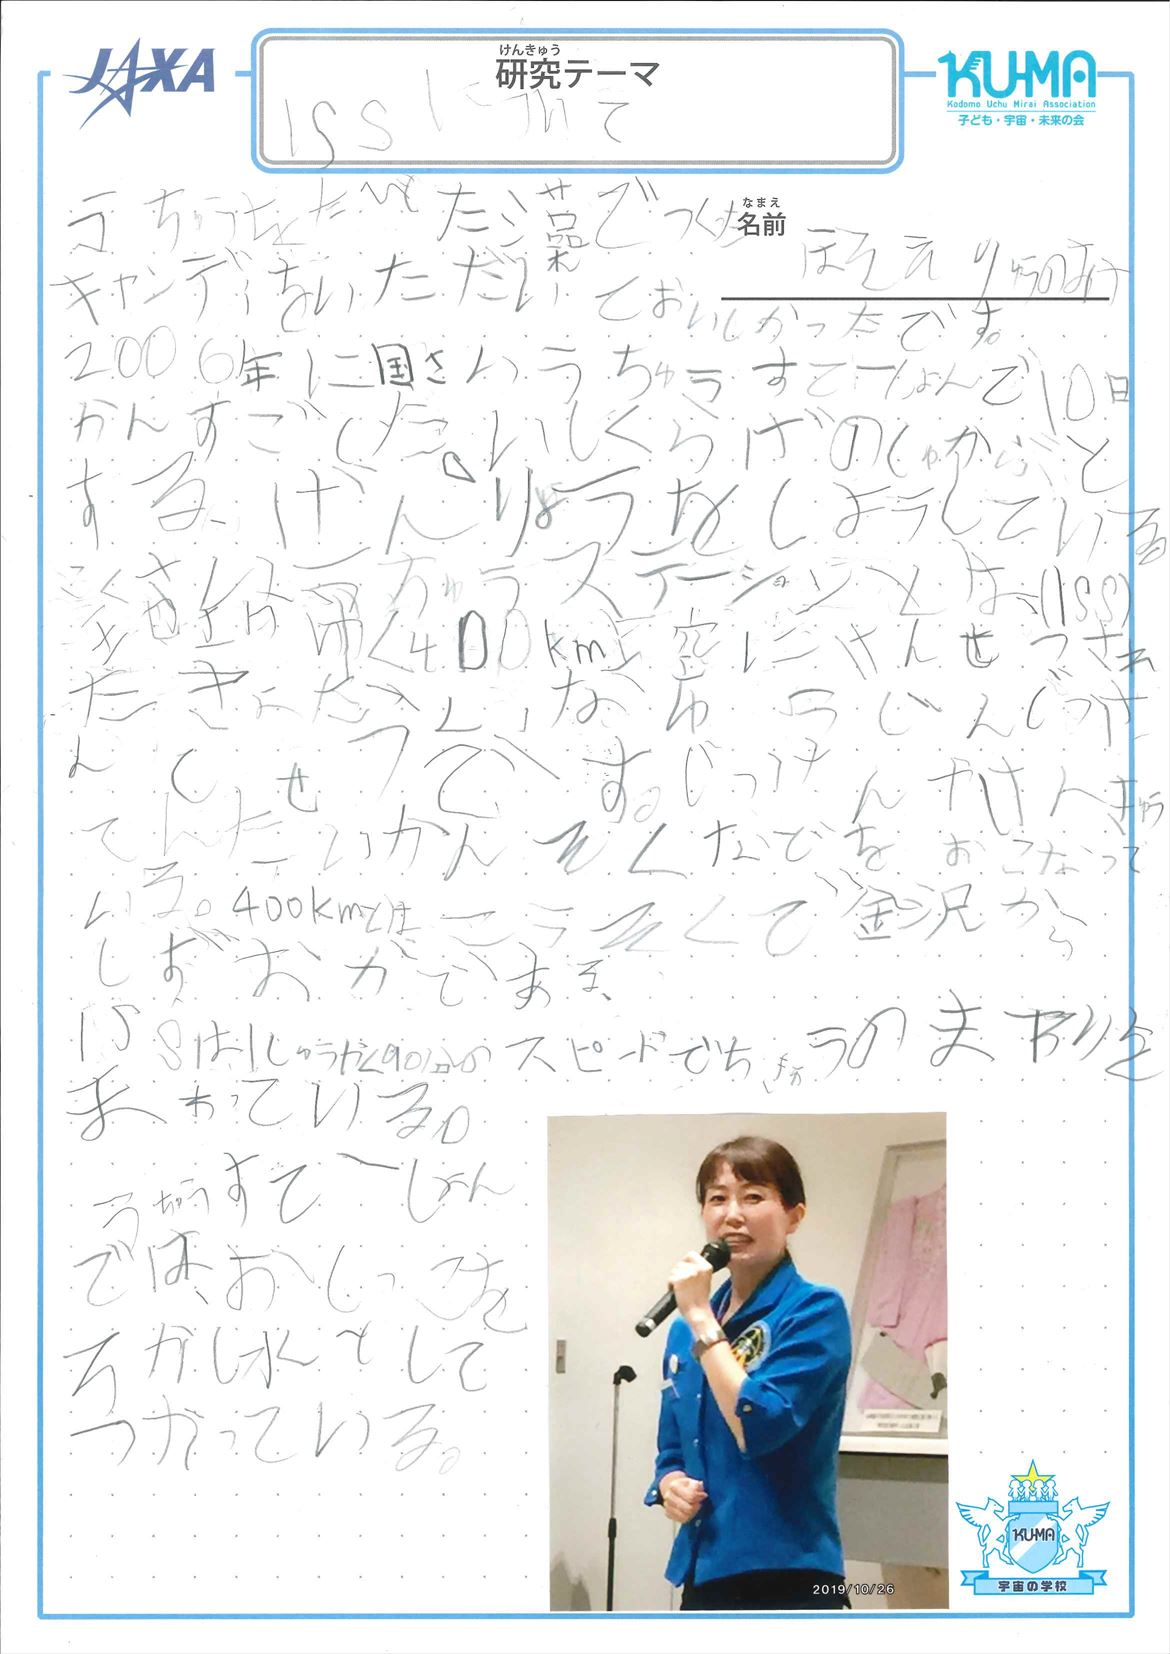 JAXA
けんきゅう
研究テーマ
ISSについて
KU-MA
Kodomo Uchu Mirai Association
子ども・宇宙・未来の会
なまえ
名前
ほそえ りゅうのすけ
うちゅうをただよった藻でつくった
キャンディをいただいておいしかったです。
2006年に国さいうちゅうすてーしょんで10日
かんすごした。いしくらげの
する、げんりょうをしようしている
うちゅうステーションとは、(ISS)
400km上空に せつされ
たきょだいな
せつです。じっけんやけんきゅう
てんたいかんそくなどをおこなって
いる。400kmとはこうそくで金沢から
しずおかである、
ISSは1しゅうやく90分のスピードでちきゅうのまわりを
まわっている。
うちゅうすてーしょん
では、おしっこを
ろかし水として
つかっている。
2019/10/26
KU-MA
宇宙の学校